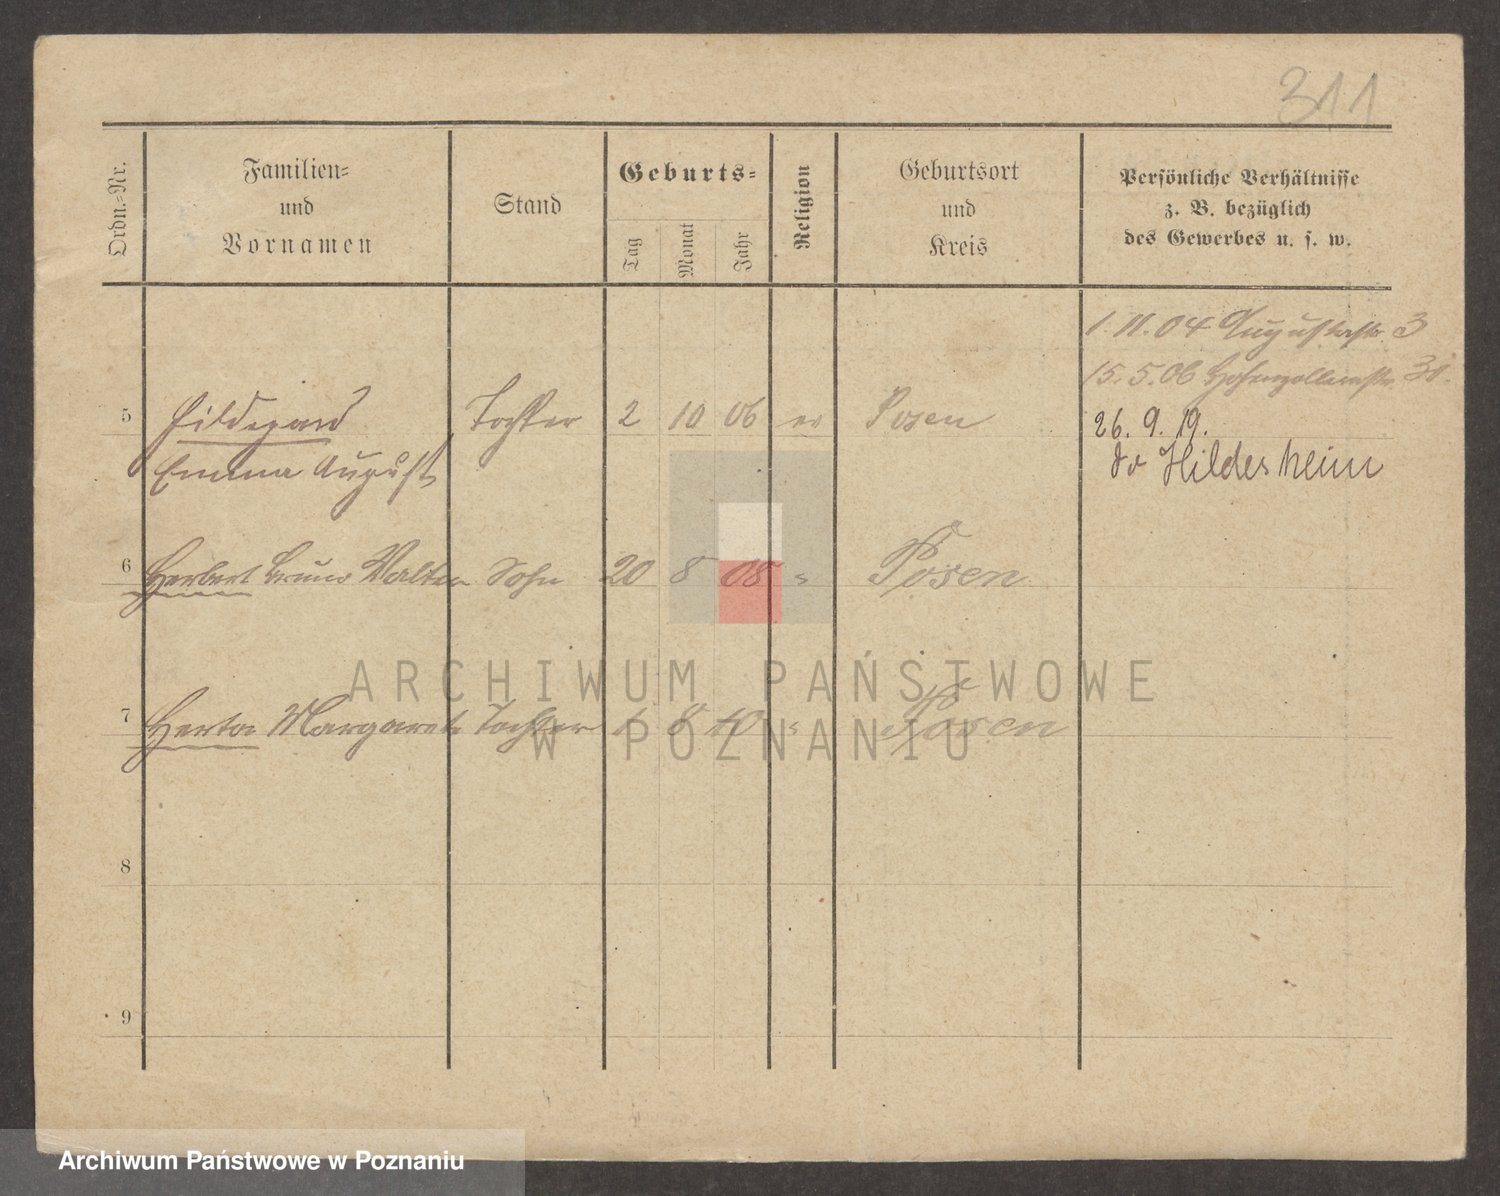 311
Ordn.=Nr.
Familien=
und
Vornamen
Stand
Geburts=
Tag
Monat
Jahr
Religion
Geburtsort
und
Kreis
Persönliche Verhältnisse
z. B. bezüglich
des Gewerbes u. s. w.
1. 11. 04 Augustastr. 3
15. 5. 06 Hohenzollernstr. 31.
5 Hildegard Tochter 2 10 06 ev Posen
26. 9. 19.
Emma August
Hildesheim
6 Herbert Bruno Walter Sohn 20 8 08 " Posen
ARCHIWUM PAŃSTWOWE
7 Herta Margarete Tochter 1 8 10 " Posen
W POZNANIU
8
9
Archiwum Państwowe w Poznaniu